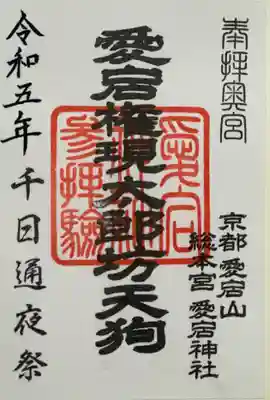 奉拝奥宮
京都 愛宕山
総本宮 愛宕神社
愛宕権現太郎坊天狗
令和五年 千日通夜祭
愛宕
参拝驗